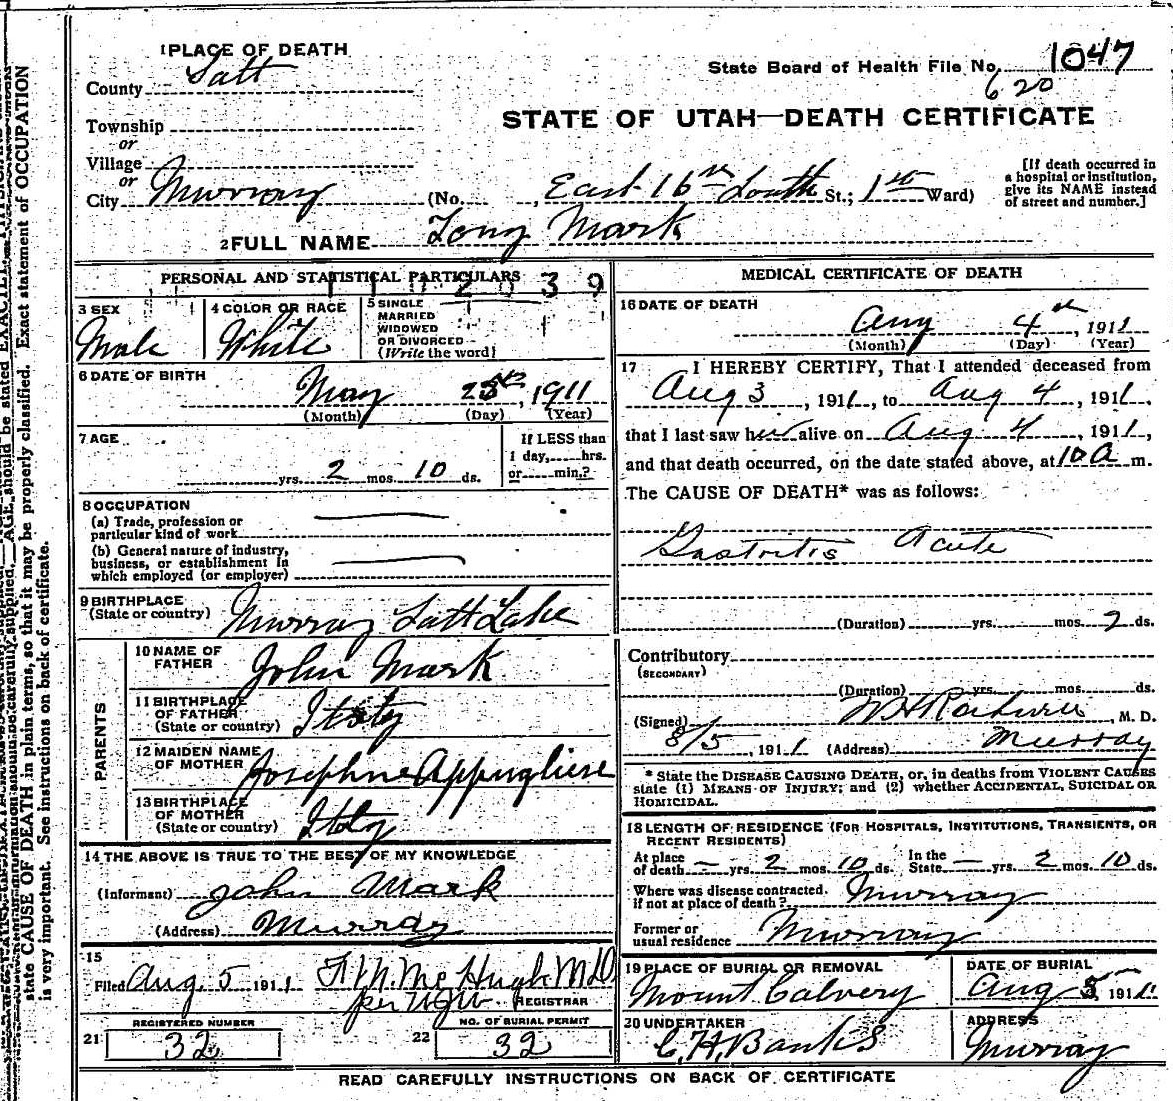 1 PLACE OF DEATH
County Salt
State Board of Health File No. 1047
620
STATE OF UTAH—DEATH CERTIFICATE
Township
or
Village
or
City Murray (No. , East 16th South St.; 1st Ward)
[If death occurred in a hospital or institution, give its NAME instead of street and number.]
2 FULL NAME Tony Mark
PERSONAL AND STATISTICAL PARTICULARS
1102039
3 SEX
Male
4 COLOR OR RACE
White
5 SINGLE
MARRIED
WIDOWED
OR DIVORCED
(Write the word)
6 DATE OF BIRTH
May 25th, 1911
(Month) (Day) (Year)
7 AGE
yrs. 2 mos. 10 ds.
If LESS than
1 day, hrs.
or min.?
8 OCCUPATION
(a) Trade, profession or
particular kind of work
(b) General nature of industry,
business, or establishment in
which employed (or employer)
9 BIRTHPLACE
(State or country) Murray Salt Lake
PARENTS
10 NAME OF
FATHER John Mark
11 BIRTHPLACE
OF FATHER
(State or country) Italy
12 MAIDEN NAME
OF MOTHER Josephine Appugliese
13 BIRTHPLACE
OF MOTHER
(State or country) Italy
14 THE ABOVE IS TRUE TO THE BEST OF MY KNOWLEDGE
(Informant) John Mark
(Address) Murray
15
Filed Aug. 5 1911 McHugh MD
per REGISTRAR
REGISTERED NUMBER
21 32
NO. OF BURIAL PERMIT
22 32
MEDICAL CERTIFICATE OF DEATH
16 DATE OF DEATH
Aug 4th, 1911
(Month) (Day) (Year)
17 I HEREBY CERTIFY, That I attended deceased from
Aug 3, 1911, to Aug 4, 1911,
that I last saw h alive on Aug 4, 1911,
and that death occurred, on the date stated above, at 10 A m.
The CAUSE OF DEATH* was as follows:
Gastritis Acute
(Duration) yrs. mos. 2 ds.
Contributory
(SECONDARY)
(Duration) yrs. mos. ds.
(Signed) , M. D.
8/5, 1911 (Address) Murray
* State the DISEASE CAUSING DEATH, or, in deaths from VIOLENT CAUSES
state (1) MEANS OF INJURY; and (2) whether ACCIDENTAL, SUICIDAL OR
HOMICIDAL.
18 LENGTH OF RESIDENCE (FOR HOSPITALS, INSTITUTIONS, TRANSIENTS, OR
RECENT RESIDENTS)
At place
of death — yrs. 2 mos. 10 ds. In the
State — yrs. 2 mos. 10 ds.
Where was disease contracted,
if not at place of death? Murray
Former or
usual residence Murray
19 PLACE OF BURIAL OR REMOVAL
Mount Calvery
DATE OF BURIAL
Aug 5, 1911
20 UNDERTAKER
C.H. Banks
ADDRESS
Murray
READ CAREFULLY INSTRUCTIONS ON BACK OF CERTIFICATE
state CAUSE OF DEATH in plain terms, so that it may be properly classified. Exact statement of OCCUPATION
is very important. See instructions on back of certificate.